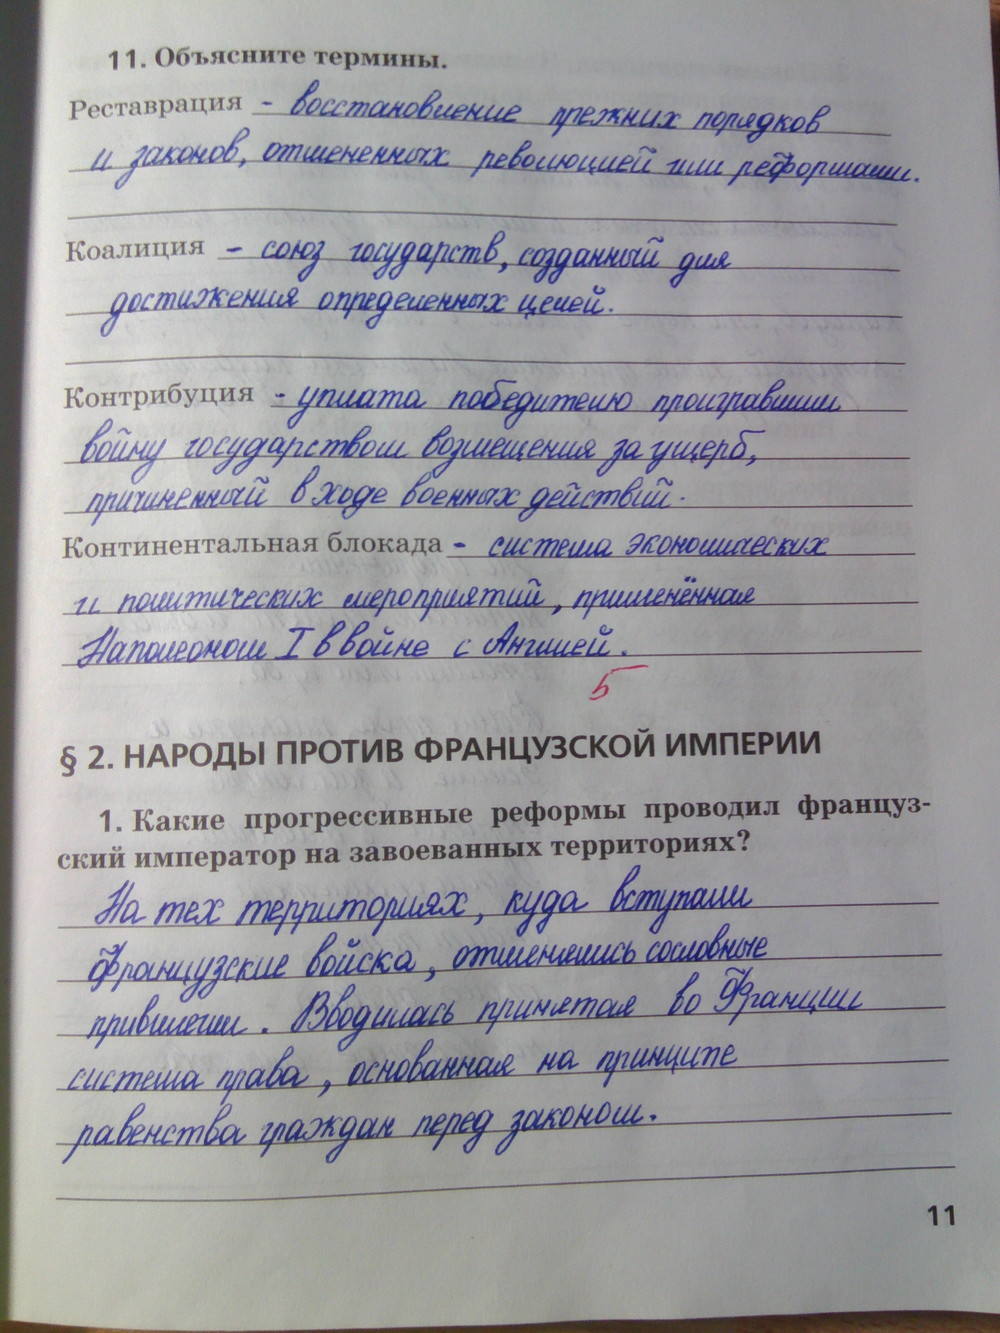 11. Объясните термины.
Реставрация - восстановление прежних порядков
и законов, отмененных революцией или реформами.
Коалиция - союз государств, созданный для
достижения определенных целей.
Контрибуция - уплата победителю проигравшим
войну государством возмещения за ущерб,
причиненный в ходе военных действий.
Континентальная блокада - система экономических
и политических мероприятий, применённая
Наполеоном I в войне с Англией.
5
§ 2. НАРОДЫ ПРОТИВ ФРАНЦУЗСКОЙ ИМПЕРИИ
1. Какие прогрессивные реформы проводил француз-
ский император на завоеванных территориях?
На тех территориях, куда вступали
французские войска, отменялись сословные
привилегии. Вводилась принятая во Франции
система права, основанная на принципе
равенства граждан перед законом.
11